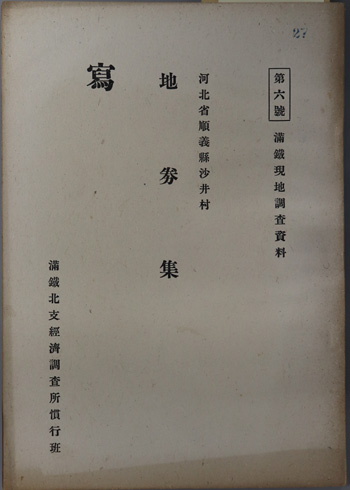 第六號 滿鐵現地調查資料
河北省順義縣沙井村
地券集
寫
滿鐵北支經濟調查所慣行班